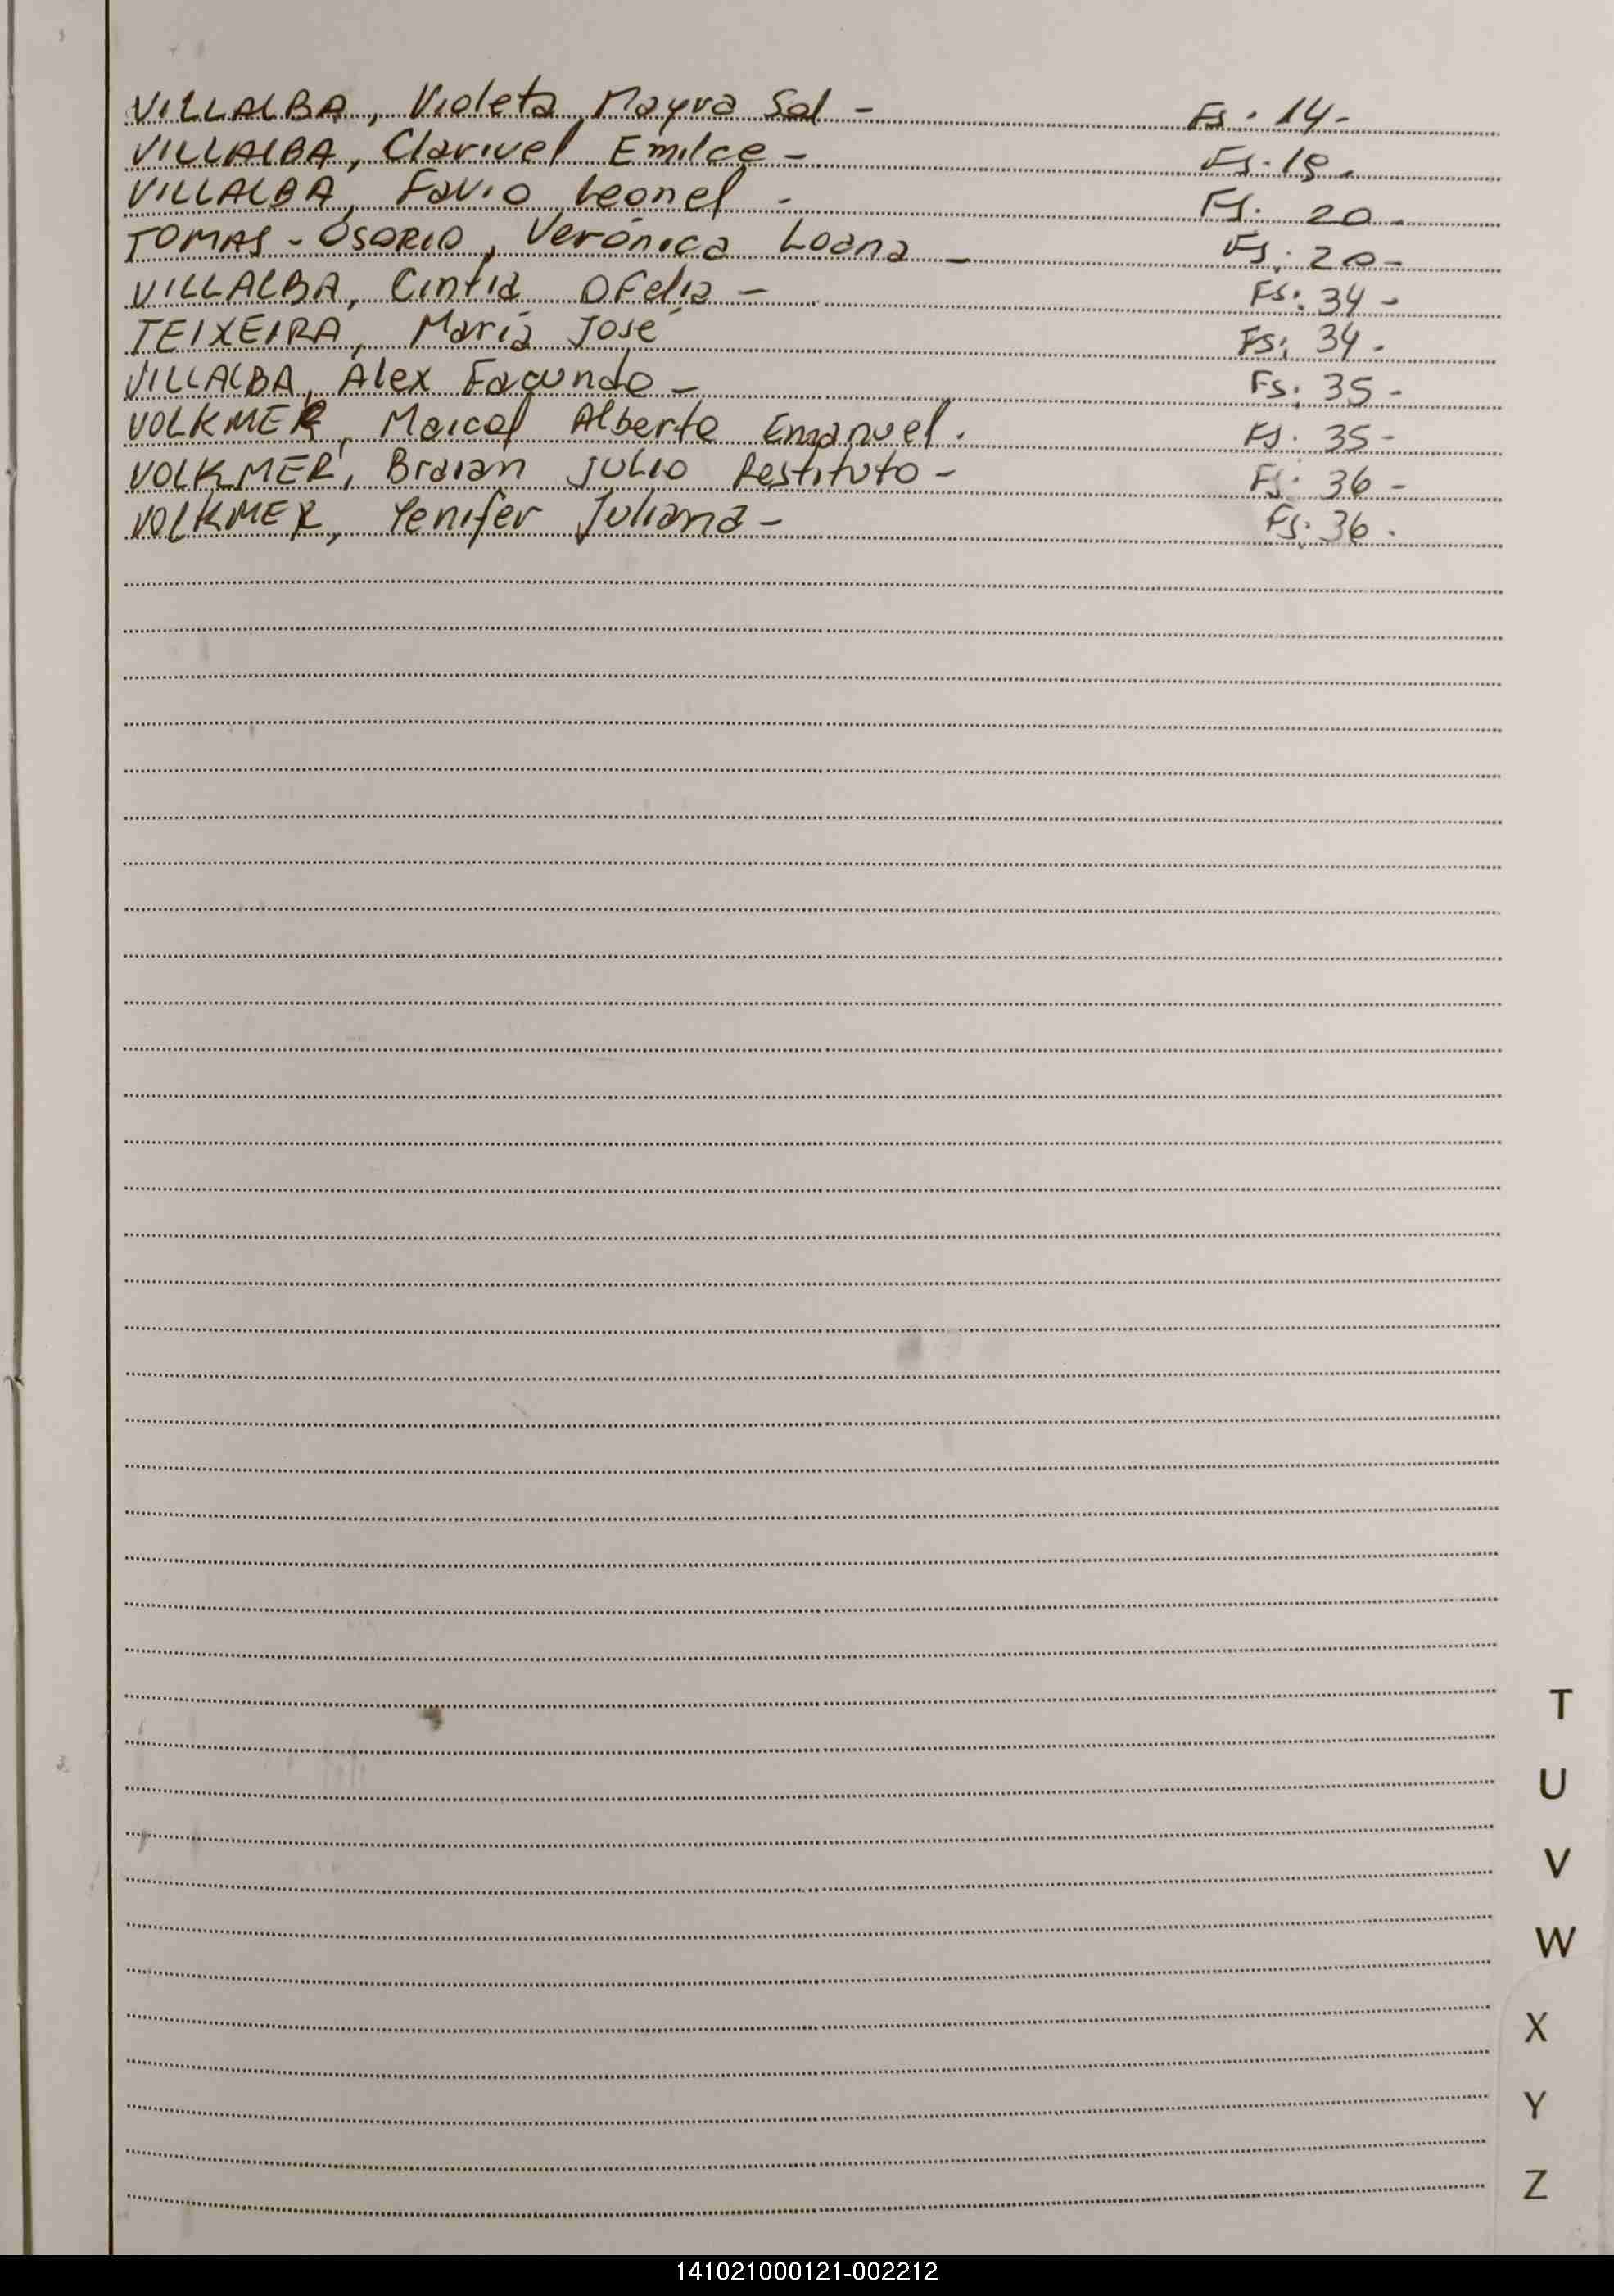 VILLALBA, Violeta Mayra Sol - Fs. 14-
VILLALBA, Clarivel Emilce - Fs. 18-
VILLALBA, Favio Leonel - Fs. 20-
TOMAS - OSORIO, Verónica Loana - Fs. 20-
VILLALBA, Cintia Ofelia - Fs. 34-
TEIXEIRA, María José Fs. 34-
VILLALBA, Alex Facundo - Fs. 35-
VOLKMER, Maicol Alberto Emanuel. Fs. 35-
VOLKMER, Braian Julio Restituto - Fs. 36-
VOLKMER, Yenifer Juliana - Fs. 36.
T
U
V
W
X
Y
Z
141021000121-002212